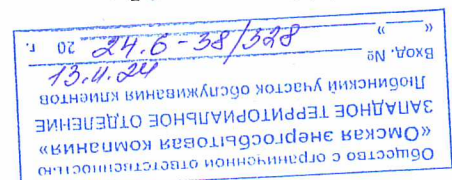 Общество с ограниченной ответственностью
«Омская энергосбытовая компания»
ЗАПАДНОЕ ТЕРРИТОРИАЛЬНОЕ ОТДЕЛЕНИЕ
Любинский участок обслуживания клиентов
Вход. №
« » 20 г.
24.6-38/328
13.11.24